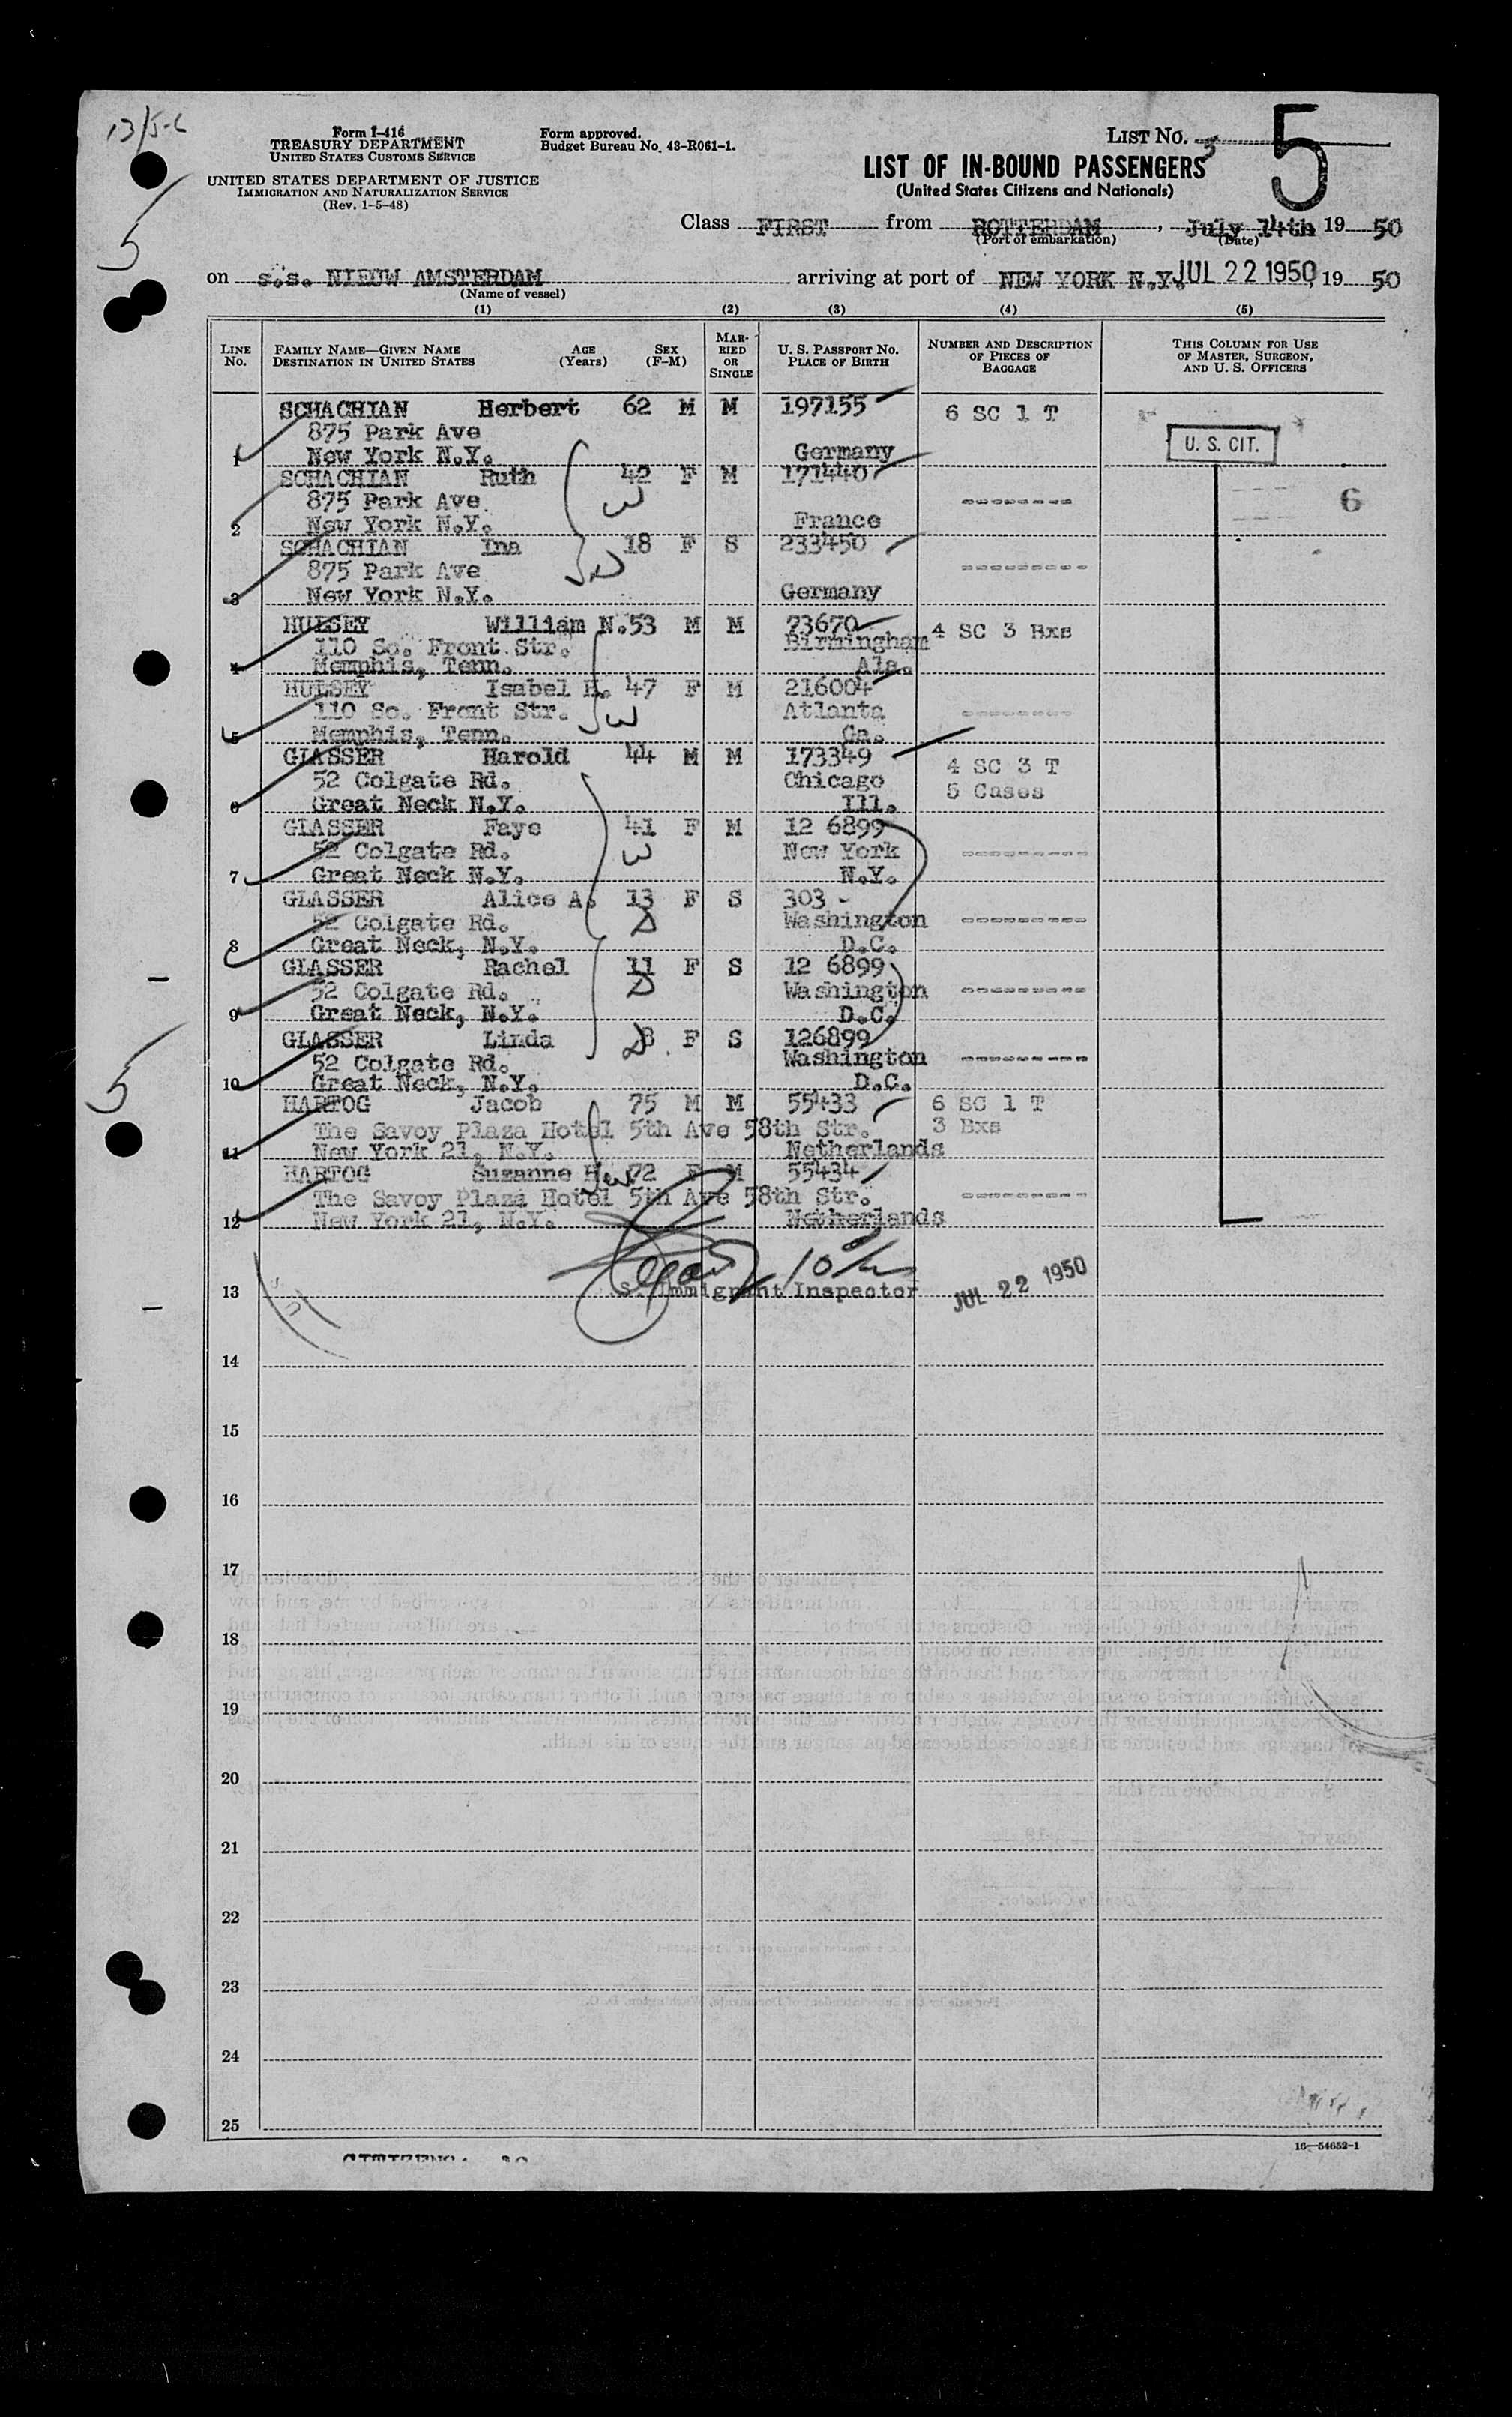 13/5-6
Form I-416
TREASURY DEPARTMENT
UNITED STATES CUSTOMS SERVICE
UNITED STATES DEPARTMENT OF JUSTICE
IMMIGRATION AND NATURALIZATION SERVICE
(Rev. 1-5-48)
Form approved.
Budget Bureau No. 43-R061-1.
LIST NO. 5
5
LIST OF IN-BOUND PASSENGERS
(United States Citizens and Nationals)
5
Class FIRST from ROTTERDAM, July 14th 19 50
(Port of embarkation) (Date)
on s.s. NIEUW AMSTERDAM arriving at port of NEW YORK N.Y. JUL 22 1950, 19 50
(Name of vessel)
(1) (2) (3) (4) (5)
LINE NO. FAMILY NAME—GIVEN NAME DESTINATION IN UNITED STATES AGE (Years) SEX (F-M) MARRIED OR SINGLE U. S. PASSPORT NO. PLACE OF BIRTH NUMBER AND DESCRIPTION OF PIECES OF BAGGAGE THIS COLUMN FOR USE OF MASTER, SURGEON, AND U. S. OFFICERS
SCHACHIAN Herbert 62 M M 197155 6 SC 1 T
875 Park Ave U. S. CIT.
1 New York N.Y. Germany
SCHACHIAN Ruth 42 F M 171440
875 Park Ave W -------- 6
2 New York N.Y. France
SCHACHIAN Ina 18 F S 233450
875 Park Ave D ---------
3 New York N.Y. Germany
HULSEY William N. 53 M M 73670 4 SC 3 Bxs
110 So. Front Str. Birmingham
4 Memphis, Tenn. Ala.
HULSEY Isabel H. 47 F M 216004
110 So. Front Str. W Atlanta --------
5 Memphis, Tenn. Ga.
GLASSER Harold 44 M M 173349 4 SC 3 T
52 Colgate Rd. Chicago 5 Cases
6 Great Neck N.Y. Ill.
GLASSER Faye 41 F M 12 6899
52 Colgate Rd. W New York ---------
7 Great Neck N.Y. N.Y.
GLASSER Alice A. 13 F S 303 -
52 Colgate Rd. D Washington ---------
8 Great Neck, N.Y. D.C.
GLASSER Rachel 11 F S 12 6899
52 Colgate Rd. D Washington ---------
9 Great Neck, N.Y. D.C.
GLASSER Linda 8 F S 126899
52 Colgate Rd. D Washington ---------
10 Great Neck, N.Y. D.C.
5
HARTOG Jacob 75 M M 55433 6 SC 1 T
The Savoy Plaza Hotel 5th Ave 58th Str. 3 Bxs
11 New York 21, N.Y. Netherlands
HARTOG Suzanne H. W 72 F M 55434
The Savoy Plaza Hotel 5th Ave 58th Str. ---------
12 New York 21, N.Y. Netherlands
13 S. Immigrant Inspector JUL 22 1950
14
15
16
17
18
19
20
21
22
23
24
25
16—54652-1